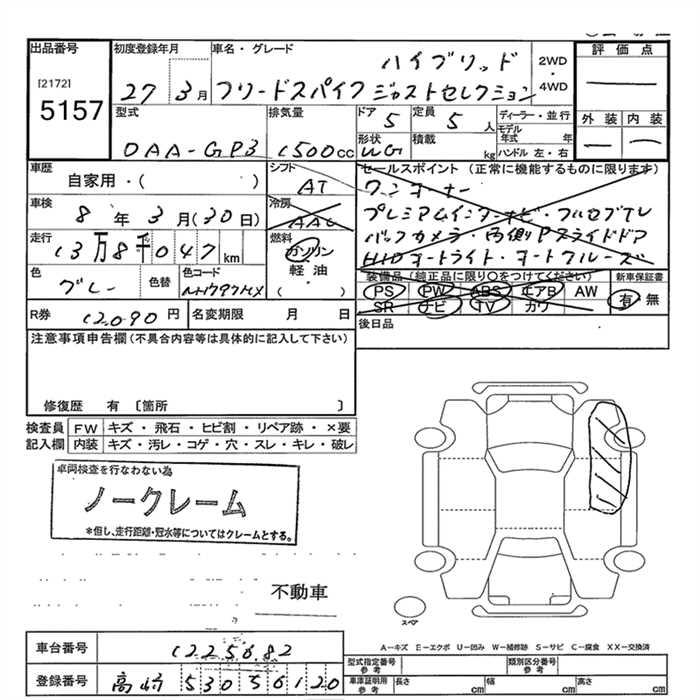 出品番号 初度登録年月 車名・グレード ハイブリッド 2WD・4WD 評価点
[2172]
5157
27年3月 フリードスパイク ジャストセレクション
型式 排気量 ドア 定員 ディーラー・並行 外装 内装
DAA-GP3 1500cc 5 5人 モデル年式 年
形状 積載 kg ハンドル 左・右
WG
車歴 シフト セールスポイント (正常に機能するものに限ります)
自家用・( ) AT ワンオーナー
車検 冷房 プレミアムインターナビ・フルセグTV
8年3月(30日) AAC バックカメラ・両側Pスライドドア
走行 燃料 HIDオートライト・オートクルーズ
13万8千047km ガソリン
軽油・( )
色 色替 色コード 装備品 (純正品に限り〇をつけてください) 新車保証書
グレー NH797MX PS PW ABS エアB AW 有 無
SR ナビ TV カワ
R券 12090円 名変期限 月 日 後日品
注意事項申告欄(不具合内容等は具体的に記入して下さい)
修復歴 有 〔箇所 〕
検査員 FW キズ・飛石・ヒビ割・リペア跡・×要
記入欄 内装 キズ・汚レ・コゲ・穴・スレ・キレ・破レ
車両検査を行なわない為
ノークレーム
*但し、走行距離・冠水等についてはクレームとする。
不動車
スペア
A−キズ E−エクボ U−凹み W−補修跡 S−サビ C−腐食 XX−交換済
車台番号 1225682
型式指定番号 参考 類別区分番号 参考
登録番号 高崎 530 5 6120
車庫証明用 参考 長さ cm 幅 cm 高さ cm